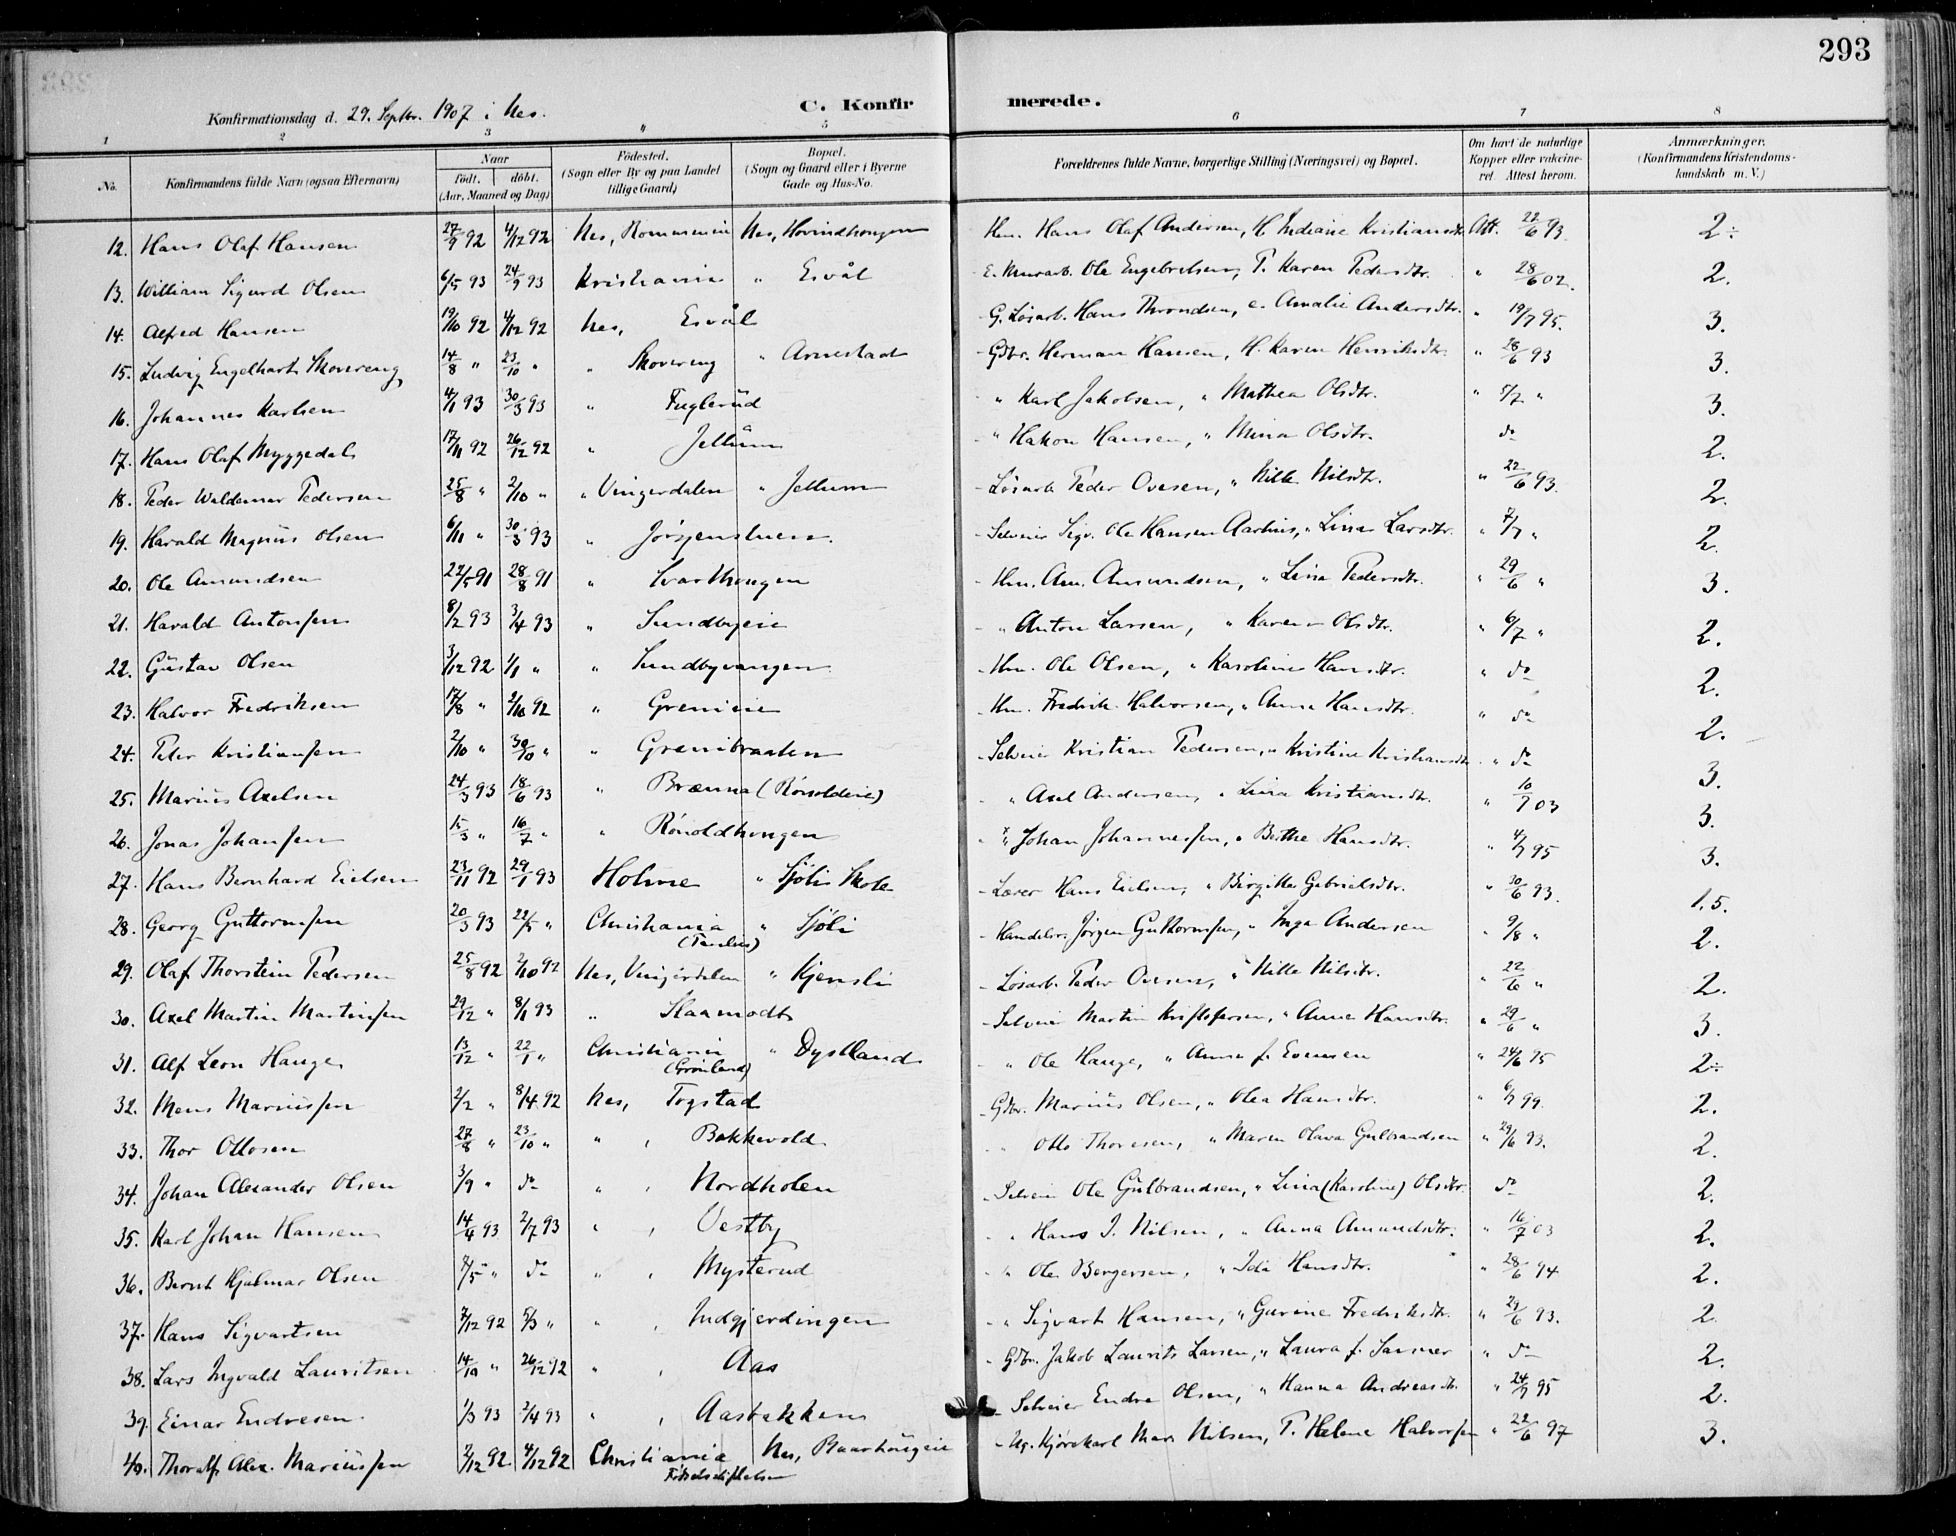 293
Konfirmationsdag d. 29. Septbr. 1907 i Nes.
C. Konfirmerede.
1 2 3 " 5 6 7 8
No. Konfirmandens fulde Navn (ogsaa Efternavn) Naar født. døbt. (Aar, Maaned og Dag) Fødested. (Sogn eller By og paa Landet tillige Gaard) Bopæl. (Sogn og Gaard eller i Byerne Gade og Hus-No. Forældrenes fulde Navne, borgerlige Stilling (Næringsvei) og Bopæl. Om havt de naturlige Kopper eller vaccineret. Attest herom. Anmærkninger. (Konfirmandens Kristendomskundskab m. V.)
12. Hans Olaf Hansen 27/9 92 4/12 92 Nes, Rommenie Nes, Hovindhougen Hm. Hans Olaf Andersen, H. Indiane Kristiansdtr. Att. 22/6 93. 2÷
13. William Sigurd Olsen 6/5 93 24/9 93 Kristiania " Esvål E. Murarb. Ole Engebretsen, T. Karen Pedersdtr. " 28/6 02. 2.
14. Alfred Hansen 19/10 92 4/12 92 Nes, Esvål G. Løsarb. Hans Throndsen, e. Amalie Andersdtr. " 19/7 95. 3.
15. Ludvig Engelhart Skovereng 14/8 " 23/10 " " Skovereng " Arnestad Gdbr. Herman Hansen, H. Karen Henriksdtr. " 28/6 93 3.
16. Johannes Karlsen 4/1 93 30/3 93 " Fuglerud " Karl Jakobsen, " Mathea Olsdtr. " 5/7 " 3.
17. Hans Olaf Myggedal 17/11 92 26/12 92 " Jellum " Hakon Hansen, " Mina Olsdtr. do 2.
18. Peder Waldemar Pedersen 25/8 " 2/10 " " Vingerdalen " Jellum Løsarb. Peder Ovesen, " Nille Nilsdtr. " 22/6 93. 2.
19. Harald Magnus Olsen 6/11 " 30/3 93 " Jørgenstuen. Selveier Sigv. Ole Hansen Aarhus, " Lina Larsdtr. " 7/7 " 2.
20. Ole Amundsen 22/5 91 28/8 91 " Svarthougen Hm. Am. Amundsen, " Lina Pedersdtr. " 29/6 " 3.
21. Harald Antonsen 8/2 93 3/4 93 " Sundbyeie " Anton Larsen, " Karen Olsdtr. " 6/7 " 2.
22. Gustav Olsen 3/12 92 1/1 " " Sundbyvangen Hm. Ole Olsen, " Karoline Hansdtr. " do 2.
23. Halvor Fredriksen 17/8 " 2/10 92 " Grenieie Hm. Fredrik Halvorsen, " Anna Hansdtr. " do 2.
24. Peter Kristiansen 2/10 " 30/10 " " Grenibraaten Selveier Kristian Pedersen, " Kristine Kristiansdtr. " do 3.
25. Marius Axelsen 24/3 93 18/6 93 " Brænna (Rönoldeie) " Axel Andersen, " Lina Kristiansdtr. " 10/7 03 3.
26. Jonas Johansen 15/3 " 16/7 " " Rönoldhougen " Johan Johannessen, " Berthe Hansdtr. " 4/7 95 3.
27. Hans Bernhard Eielsen 23/11 92 29/1 93 Holme " Sjøli Skole Lærer Hans Eielsen, " Birgitte Gabrielsdtr. " 30/6 93. 1.5.
28. Georg Guttormsen 20/3 93 22/5 " Christiania (Paulus) " Sjøli Handelsr. Jørgen Guttormsen, " Inga Andersen " 9/8 " 2.
29. Olaf Thorstein Pedersen 25/8 92 2/10 92 Nes, Vingerdalen " Kjensli Løsarb. Peder Ovesen, " Nille Nilsdtr. " 22/6 " 2.
30. Axel Martin Martinsen 29/12 " 8/1 93 " Slaamodt Selveier Martin Kristofersen, " Anne Hansdtr. " 29/6 " 3.
31. Alf Leon Hauge 13/12 " 22/1 " Christiania (Grønland) " Dystland " Ole Hauge, " Anna f. Evensen " 24/6 95 2÷
32. Mens Mariussen 2/2 " 8/4 92 Nes, Fogstad Gdbr. Marius Olsen, " Olea Hansdtr. " 6/7 99. 2.
33. Thor Ottosen 27/8 " 23/10 " " Bakkevold " Otto Thoresen, " Maren Olava Gulbrandsen " 29/6 93. 2.
34. Johan Alexander Olsen 3/9 " do " Nordholen Selveier Ole Gulbrandsen, " Lina (Karoline) Olsdtr. do 2.
35. Karl Johan Hansen 14/4 93 2/7 93 " Vestby " Hans J. Nilsen, " Anna Amundsdtr. " 16/7 03 2.
36. Bernt Hjalmar Olsen 7/5 " do " Mysterud " Ole Bergersen, " Ida Hansdtr. " 28/6 94 2.
37. Hans Sigvartsen 7/12 92 5/3 " " Indgjerdingen " Sigvart Hansen, " Gurine Fredriksdtr. " 29/6 93. 2.
38. Lars Ingvald Lauritsen 14/10 " 26/12 92 " Aas Gdbr. Jakob Laurits Larsen, " Laura f. Sanner " do 2.
39. Einar Endresen 1/3 93 2/4 93 " Aasbakken Selveier Endre Olsen, " Hanna Andreasdtr. " 24/7 95 2.
40. Thoralf Alex. Mariussen 2/12 92 4/12 92 Christiania Fødselsstiftelsen Nes, Baarhougeie Ug. Kjørekarl Mar. Nilsen, T. Helene Halvorsen " 22/6 97 3.